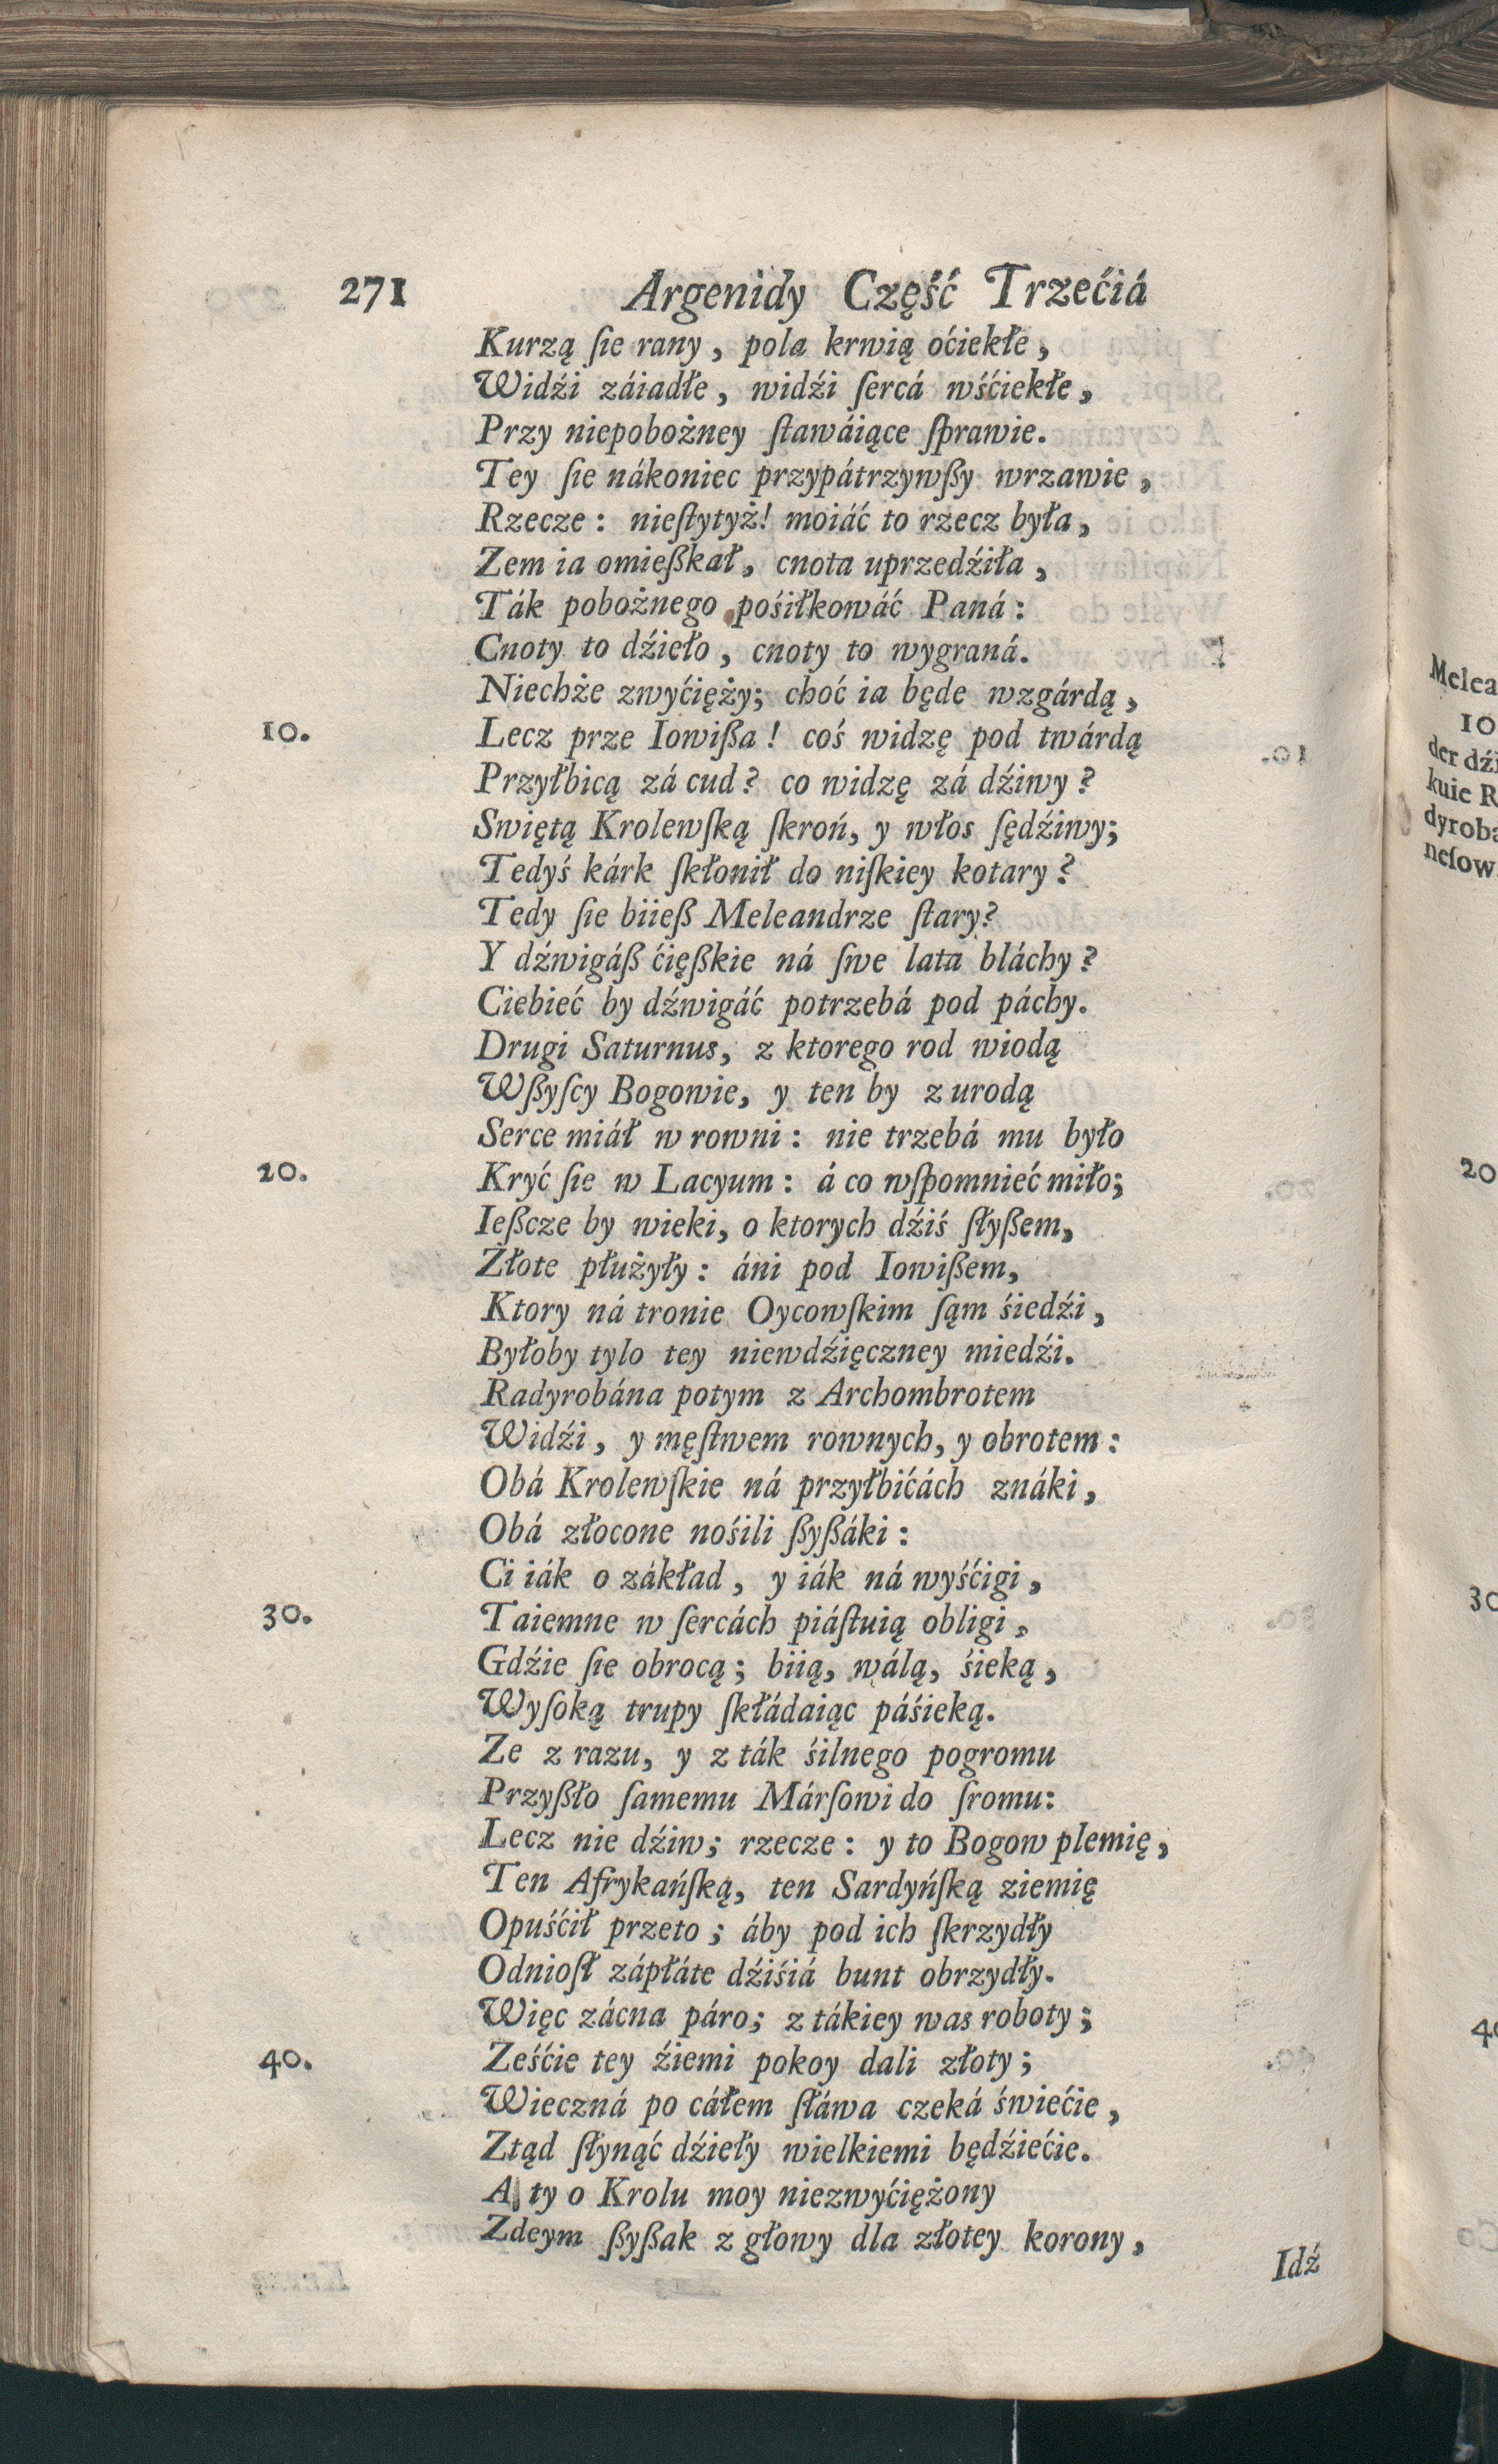 271 Argenidy Część Trzećiá
Kurzą ſie rany, pola krwią oćiekłe,
Widźi záiadłe, widźi ſercá wśćiekłe,
Przy niepobożney ſtawáiące ſprawie.
Tey ſie nákoniec przypátrzywßy wrzawie,
Rzecze: nieſtytyż! moiáć to rzecz była,
Zem ia omießkał, cnota uprzedźiła,
Ták pobożnego pośiłkowáć Paná:
Cnoty to dźieło, cnoty to wygraná.
Niechże zwyćięży; choć ia będe wzgárdą,
10. Lecz prze Iowißa! coś widzę pod twárdą
Przyłbicą zá cud? co widzę zá dźiwy?
Swiętą Krolewſką ſkroń, y włos ſędźiwy;
Tedyś kárk ſkłonił do niſkiey kotary?
Tedy ſie biieß Meleandrze ſtary?
Y dźwigáß ćięßkie ná ſwe lata bláchy?
Ciebieć by dźwigáć potrzebá pod páchy.
Drugi Saturnus, z ktorego rod wiodą
Wßyſcy Bogowie, y ten by z urodą
Serce miáł w rowni: nie trzebá mu było
20. Kryć ſie w Lacyum: á co wſpomnieć miło;
Ießcze by wieki, o ktorych dźiś ſłyßem,
Złote płużyły: áni pod Iowißem,
Ktory ná tronie Oycowſkim ſąm śiedźi,
Byłoby tylo tey niewdźięczney miedźi.
Radyrobána potym z Archombrotem
Widźi, y męſtwem rownych, y obrotem:
Obá Krolewſkie ná przyłbićách znáki,
Obá złocone nośili ßyßáki:
Ci iák o zákład, y iák ná wyśćigi,
30. Taiemne w ſercách piáſtuią obligi,
Gdźie ſie obrocą; biią, wálą, śieką,
Wyſoką trupy ſkłádaiąc páśieką.
Ze z razu, y z ták śilnego pogromu
Przyßło ſamemu Márſowi do ſromu:
Lecz nie dźiw; rzecze: y to Bogow plemię,
Ten Afrykańſką, ten Sardyńſką ziemię
Opuśćił przeto; áby pod ich ſkrzydły
Odnioſł zápłáte dźiśiá bunt obrzydły.
Więc zácna páro; z tákiey was roboty;
40. Ześćie tey źiemi pokoy dali złoty;
Wieczná po cáłem ſłáwa czeká świećie,
Ztąd ſłynąć dźieły wielkiemi będźiećie.
A ty o Krolu moy niezwyćiężony
Zdeym ßyßak z głowy dla złotey korony,
Idź
Melea
10
der dźi
kuie R
dyroba
neſow
20
30
40